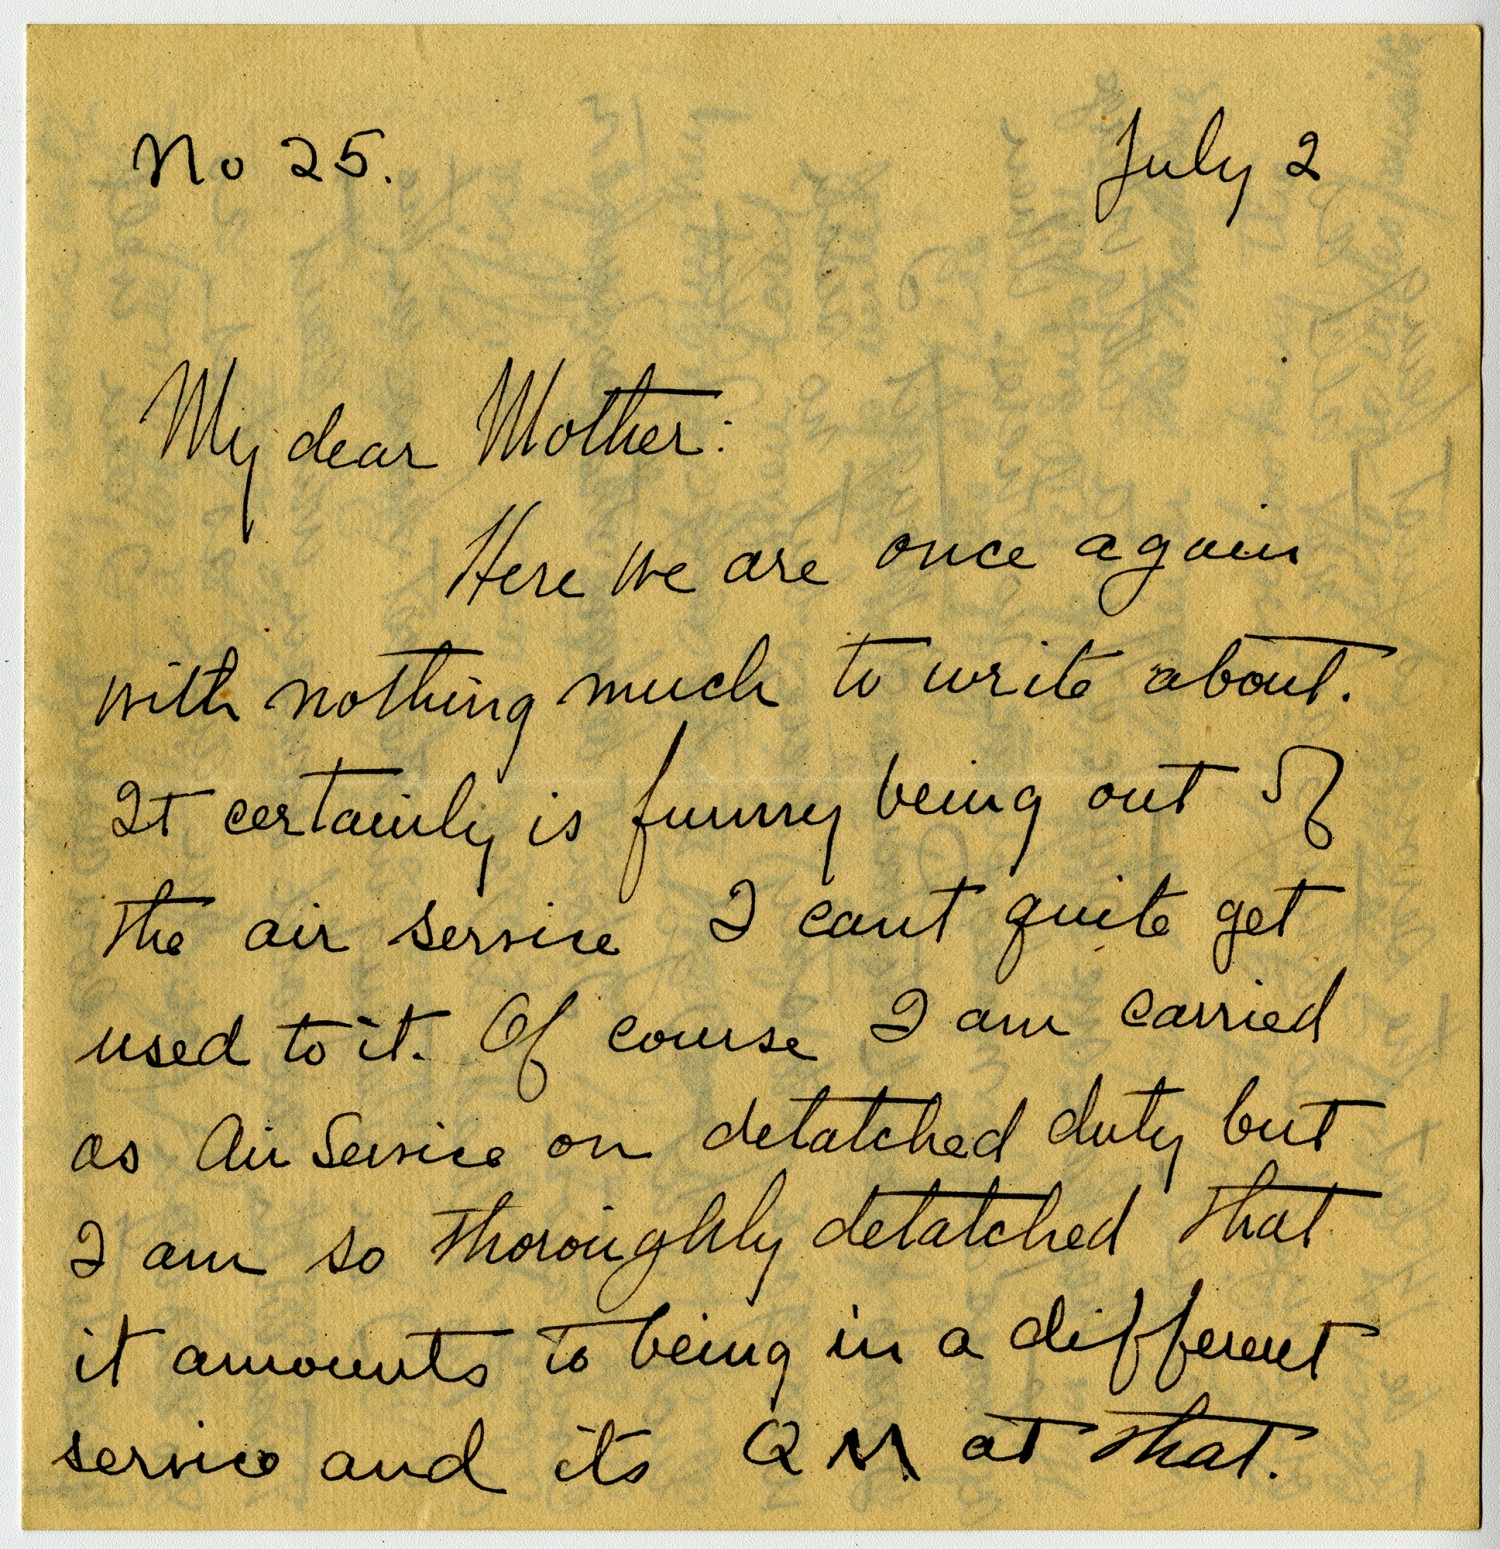 No 25. July 2
My dear Mother:
Here we are once again
with nothing much to write about.
It certainly is funny being out of
the air service I cant quite get
used to it. Of course I am carried
as Air Service on detatched duty but
I am so thoroughly detatched that
it amounts to being in a different
service and its QM at that.